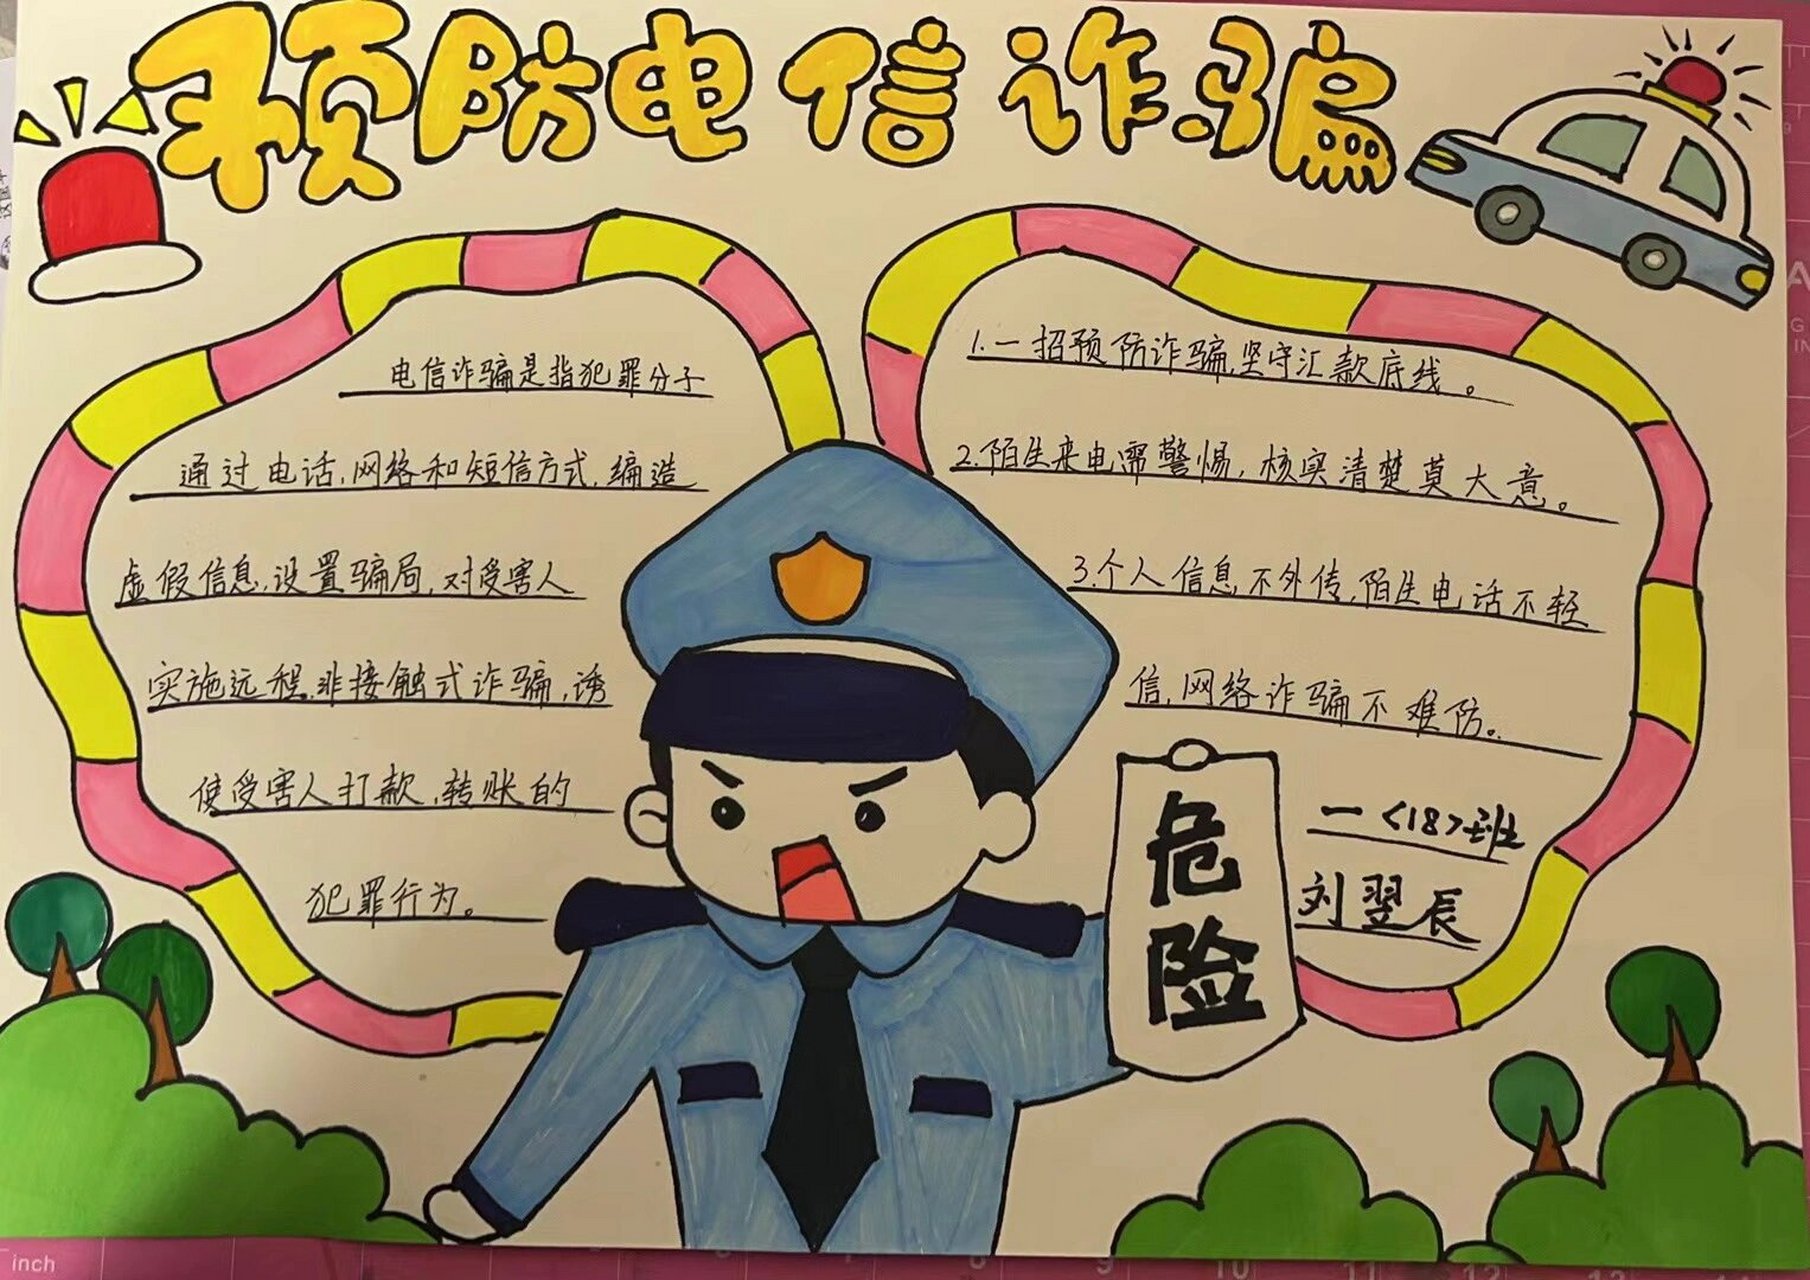 预防电信诈骗
电信诈骗是指犯罪分子
通过电话,网络和短信方式,编造
虚假信息,设置骗局,对受害人
实施远程,非接触式诈骗,诱
使受害人打款,转账的
犯罪行为。
1.一招预防诈骗,坚守汇款底线。
2.陌生来电需警惕,核实清楚莫大意。
3.个人信息不外传,陌生电话不轻
信,网络诈骗不难防。
一<18>班
刘翌辰
危
险
inch